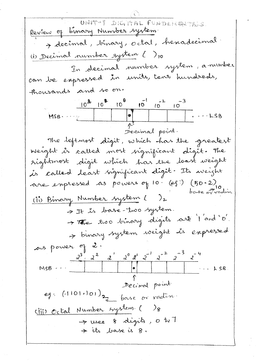 UNIT-1 DIGITAL FUNDAMENTALS
Review of Binary Number system
→ decimal, binary, octal, hexadecimal
(i) Decimal number system ( )10
In decimal number system, a number
can be expressed in units, tens hundreds,
thousands and so on.
10² 10¹ 10⁰ 10⁻¹ 10⁻² 10⁻³
MSB LSB
Decimal point
The leftmost digit, which has the greatest
weight is called most significant digit. The
rightmost digit which has the least weight
is called least significant digit. Its weight
are expressed as power of 10. (eg.) (50.2)10
base or radix
(ii) Binary Number system ( )2
→ It is base-two system.
→ The two binary digits are '1' and '0'.
→ binary system weight is expressed
as power of 2.
MSB LSB
Decimal point
eg. (1101.101)2 base or radix.
(iii) Octal Number system ( )8
→ uses 8 digits, 0 to 7
→ its base is 8.